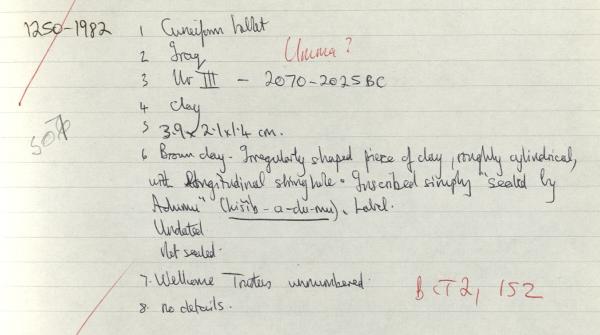 1250-1982
1 Cuneiform tablet
2 Iraq Umma?
3 Ur III - 2070-2025 BC
4 Clay
5 3.9 x 2.1 x 1.4 cm.
6 Brown clay. Irregularly shaped piece of clay, roughly cylindrical,
with longitudinal string hole. Inscribed simply "sealed by
Adumu" (kišib-a-du-mu). Label.
Undated
Not sealed.
7. Wellcome Trustees unnumbered.
BCT2, 152
8. no details.